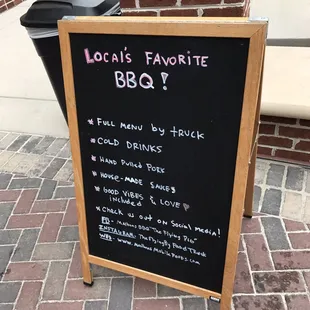 Local's Favorite
BBQ!
* Full menu by truck
* Cold drinks
* Hand Pulled Pork
* House-made Sauces
* Good vibes & love
included
* Check us out on Social media!
FB - BBQ "The Flying Pig"
Instagram - The Flying Pig Food Truck
Web - www.